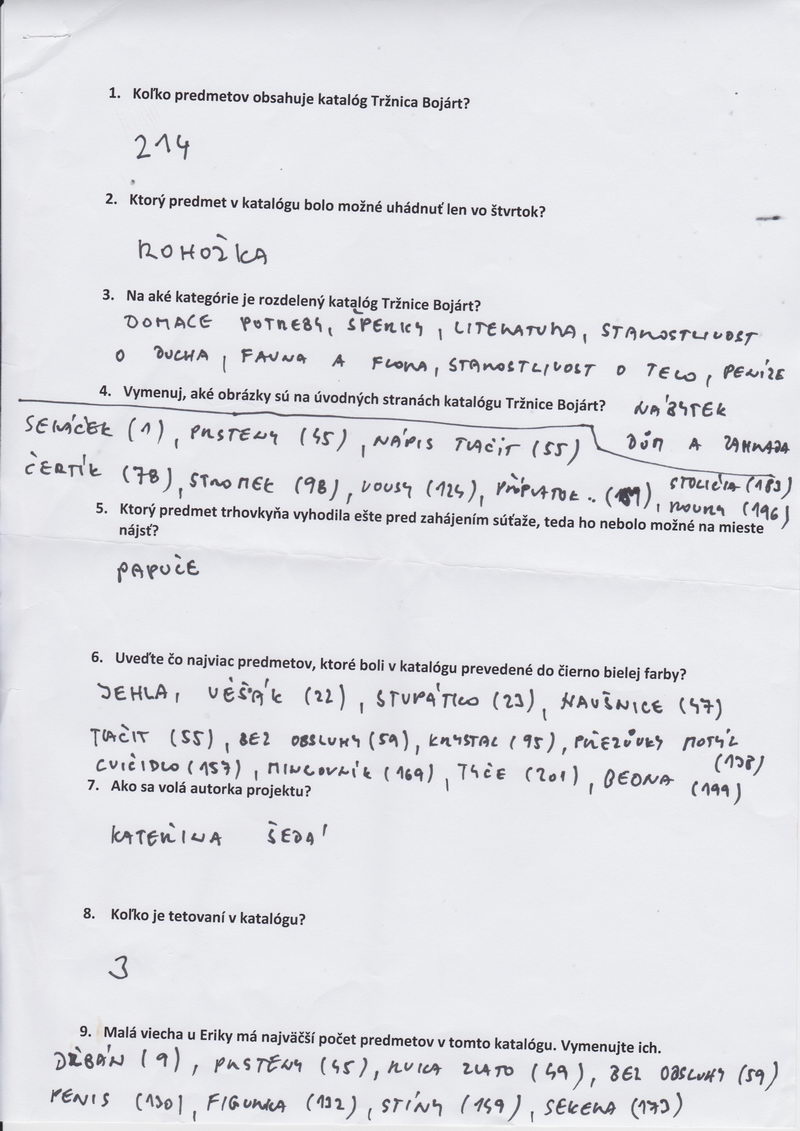 1. Koľko predmetov obsahuje katalóg Tržnica Bojárt?
214
2. Ktorý predmet v katalógu bolo možné uhádnuť len vo štvrtok?
ROHOŽKA
3. Na aké kategórie je rozdelený katalóg Tržnice Bojárt?
DOMACE POTREBY, ŠPERKY, LITERATURA, STAROSTLIVOST
O DUCHA, FAUNA A FLORA, STAROSTLIVOST O TELO, PENÍZE
4. Vymenuj, aké obrázky sú na úvodných stranách katalógu Tržnice Bojárt?
NÁBYTEK
DŮM A ZAHRADA
SEKÁČEK (1), PRSTENY (45), NÁPIS TLAČIT (55)
ČERTÍK (78), STROMEK (98), VOUSY (124), PŘÍPLATOK..
STOLIČKA (183)
, (196)
5. Ktorý predmet trhovkyňa vyhodila ešte pred zahájením súťaže, teda ho nebolo možné na mieste
nájsť?
PAPUČE
6. Uveďte čo najviac predmetov, ktoré boli v katalógu prevedené do čierno bielej farby?
JEHLA, VĚŠÁK (22), STUPÁTKO (23), NAUŠNICE (47)
TLAČIT (55), BEZ OBSLUHY (59), KRYSTAL (95), PŘEZŮVKY MOTÝL
(138)
CVIČIDLO (157), MINCOVNÍK (169), TYČE (201), BEDNA (199)
7. Ako sa volá autorka projektu?
KATEŘINA ŠEDÁ
8. Koľko je tetovaní v katalógu?
3
9. Malá viecha u Eriky má najväčší počet predmetov v tomto katalógu. Vymenujte ich.
DŽBÁN (9), PRSTENY (45), RUKA ZLATO (49), BEZ OBSLUHY (59)
PENIS (130), FIGURKA (132), STÍNY (149), SEKERA (173)